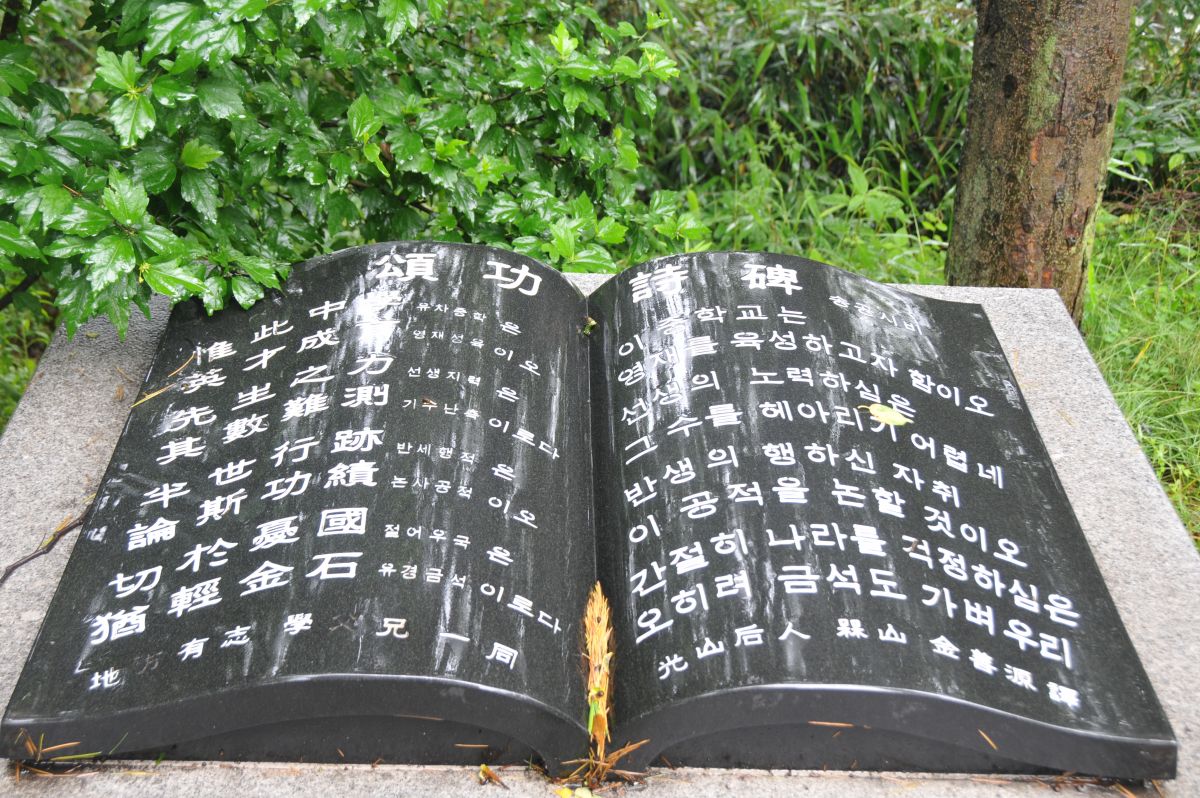 頌功
惟此中學 유차중학은
英才成 영재성육이오
先生之力 선생지력은
其數難測 기수난측이로다
半世行跡 반세행적은
論斯功績 논사공적이오
切於憂國 절어우국은
猶輕金石 유경금석이로다
地方有志學父兄一同
詩碑 송공시비
이 중학교는
영재를 육성하고자 함이오
선생의 노력하심은
그 수를 헤아리기 어렵네
반생의 행하신 자취
이 공적을 논할 것이오
간절히 나라를 걱정하심은
오히려 금석도 가벼우리
光山后人 山 金善源 譯